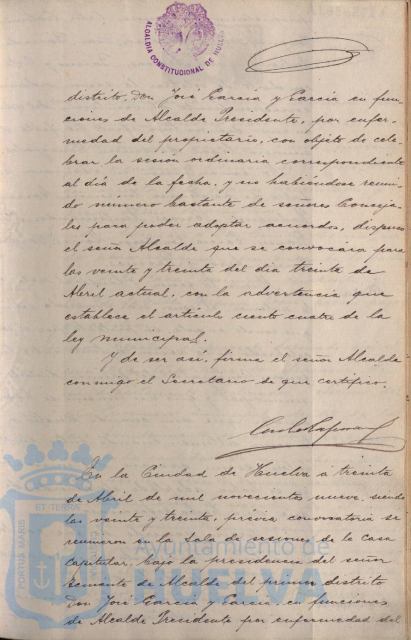 ALCALDIA CONSTITUCIONAL DE HUELVA
distrito, Don José García y García en fun-
ciones de Alcalde Presidente, por enfer-
medad del propietario, con objeto de cele-
brar la sesión ordinaria correspondiente
al día de la fecha, y no habiéndose reuni-
do número bastante de señores Conceja-
les para poder adoptar acuerdos, dispuso
el señor Alcalde que se convocára para
las veinte y treinta del día treinta de
Abril actual, con la advertencia que
establece el artículo ciento cuatro de la
ley municipal.
Y de ser así, firma el señor Alcalde
conmigo el Secretario de que certifico.
En la Ciudad de Huelva á treinta
de Abril de mil novecientos nueve, siendo
las veinte y treinta, prévia convocatoria se
reunieron en la Sala de sesiones de la casa
capitular, bajo la presidencia del señor
Teniente de Alcalde del primer distrito
Don José García y García, en funciones
de Alcalde Presidente por enfermedad del
PORTUS MARIS
ET TERRA
Ayuntamiento de
HUELVA